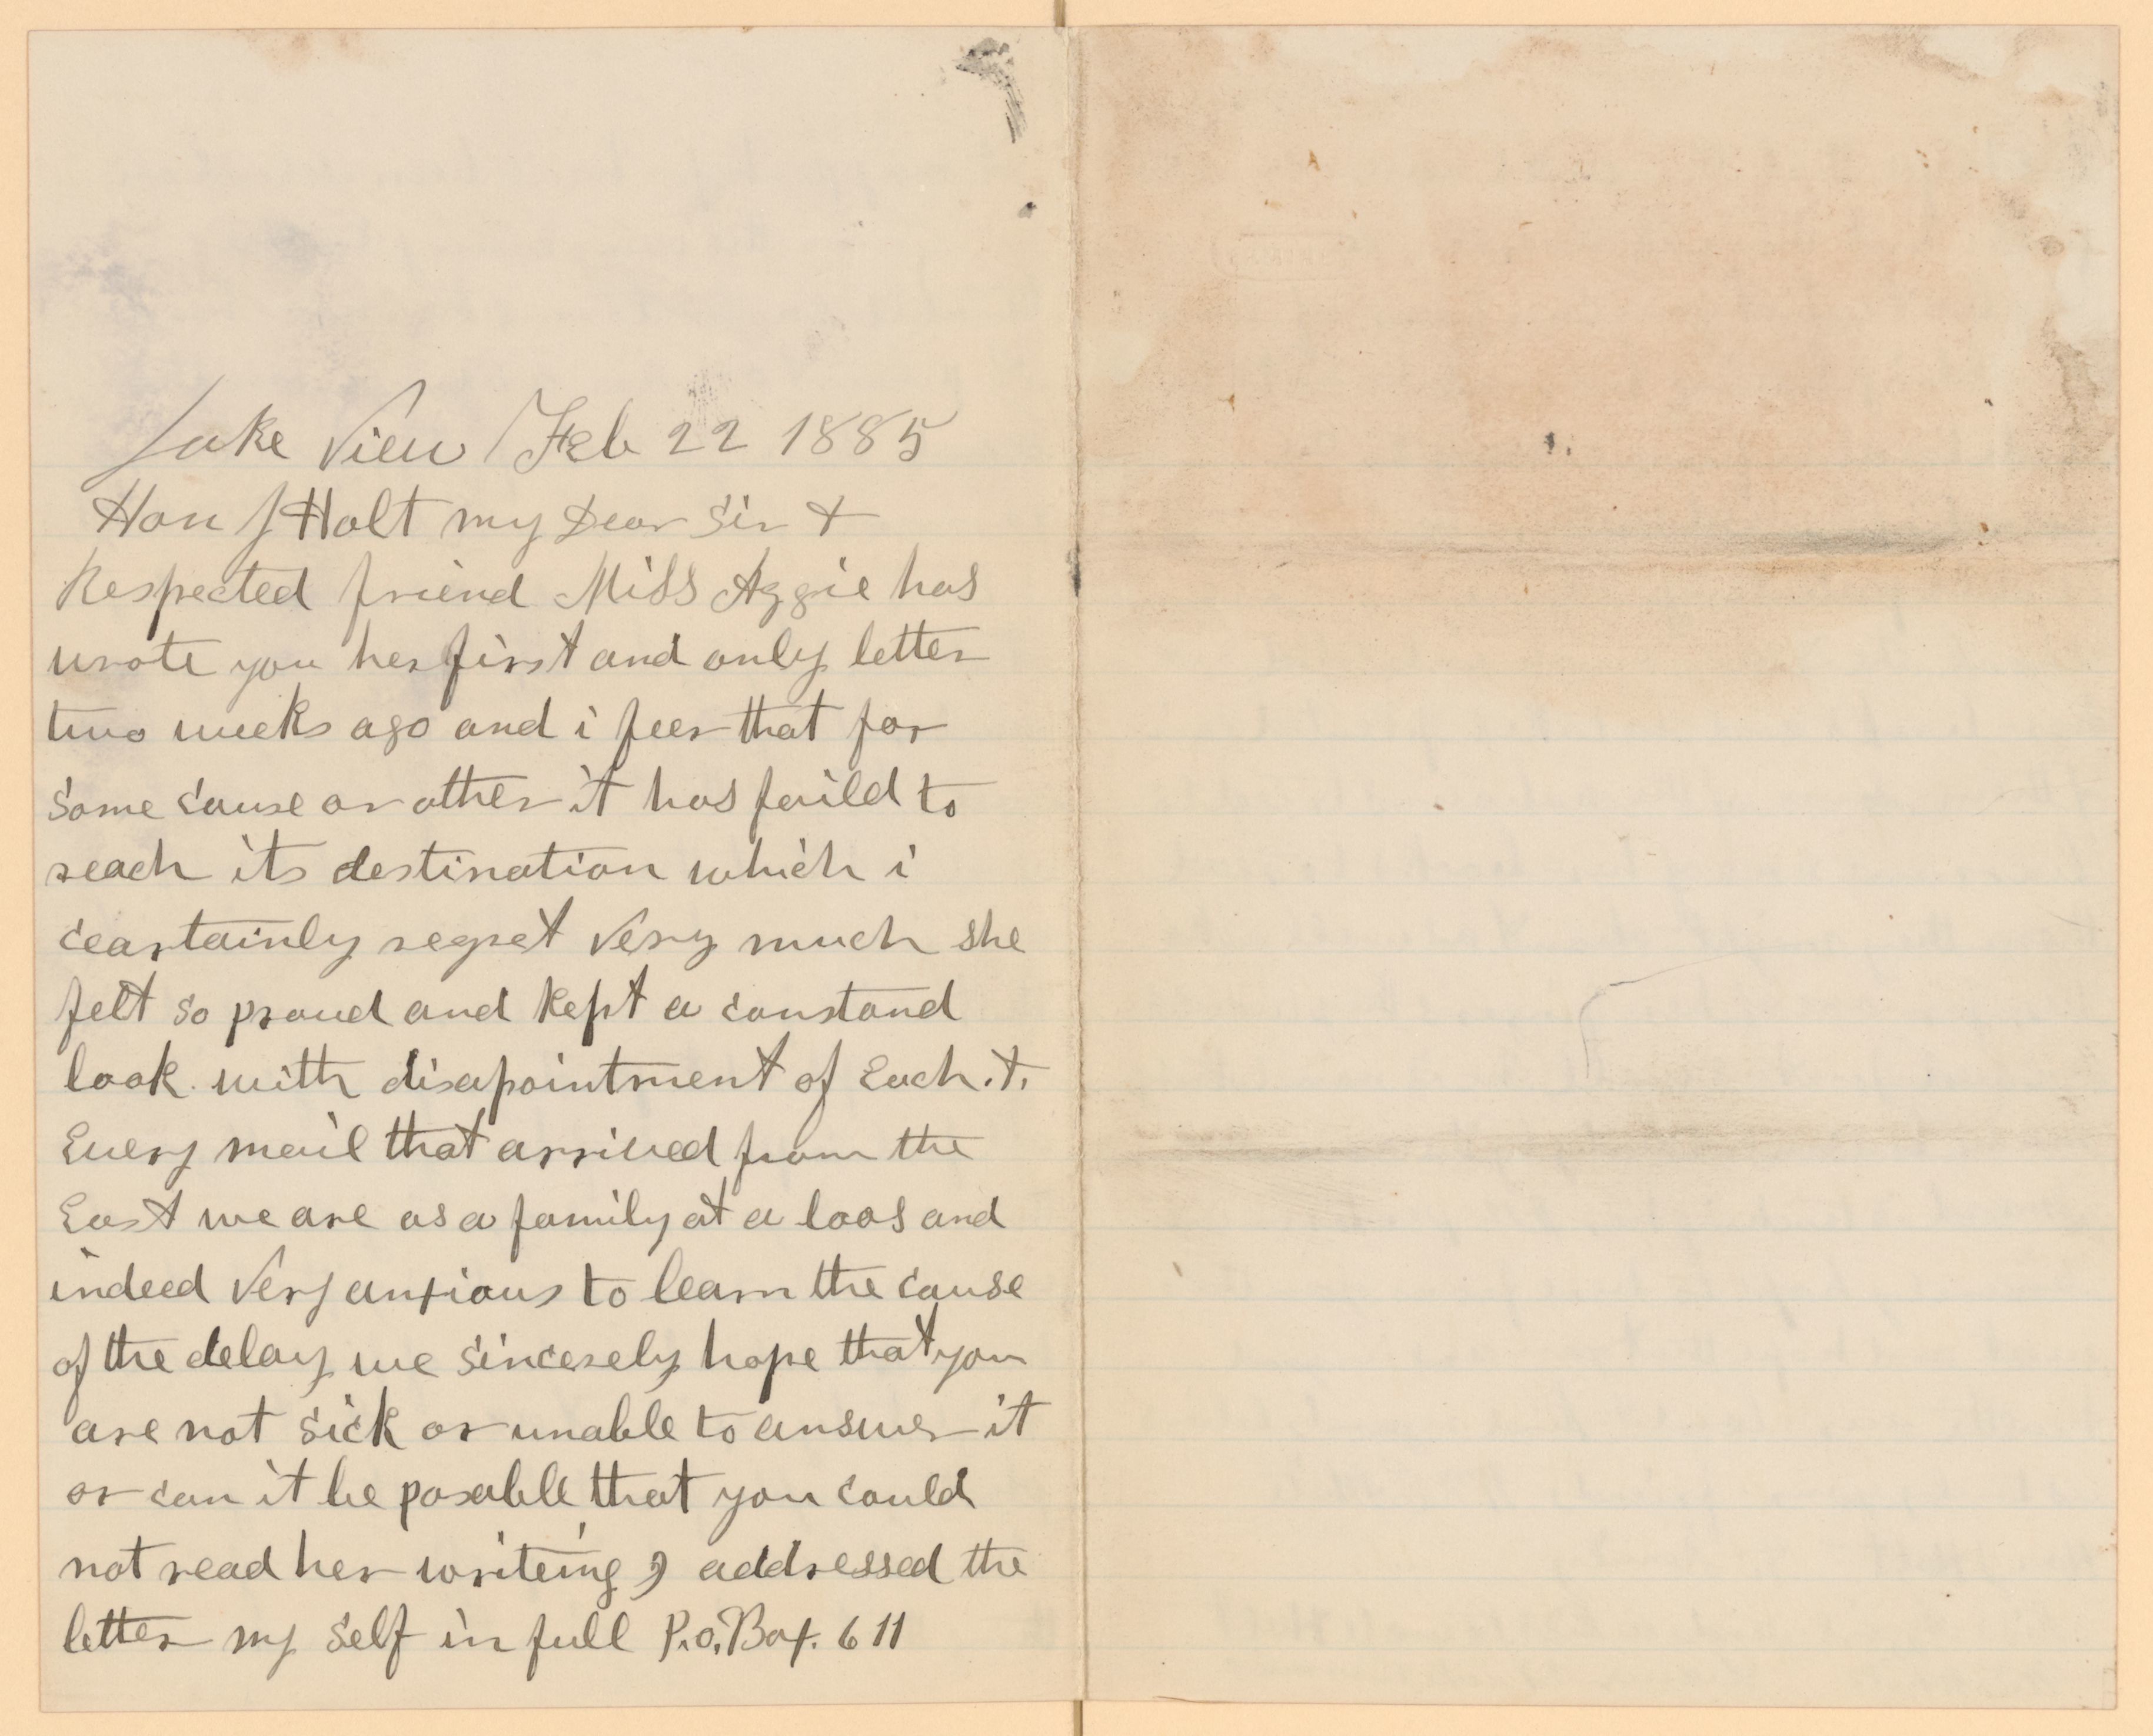 Lake View Feb 22 1885
Hon J Holt my Dear Sir &
Respected friend Miss Aggie has
wrote you her first and only letter
two weeks ago and i feer that for
some cause or other it has faild to
reach its destination which i
ceartainly regret very much she
felt so proud and kept a constand
look with disapointment of Each . &.
Every mail that arrived from the
East we are as a family at a loos and
indeed very anxious to learn the cause
of the delay we sincerely hope that you
are not sick or unable to answer it
or can it be posable that you could
not read her writeing, addressed the
letter my self in full P.O. Box. 611